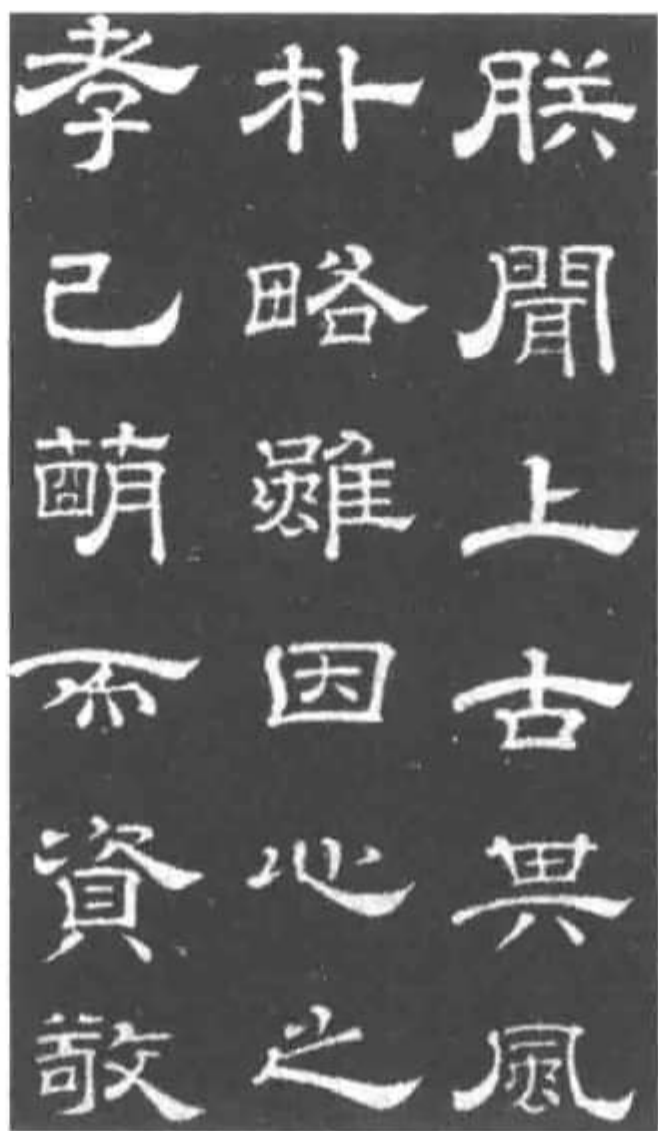 朕聞上古其風
朴略雖因心之
孝已萌而資敬